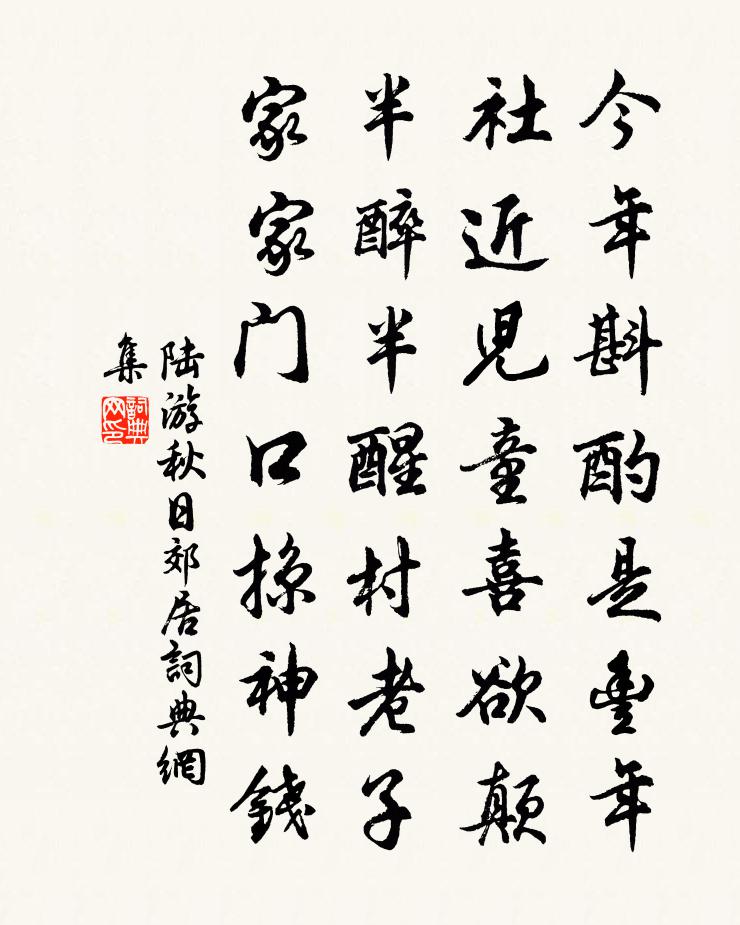 今年斟酌是豐年
社近児童喜欲顛
半醉半醒村老子
家家门口掠神錢
陆游秋日郊居詞典網
集
詞典
网印